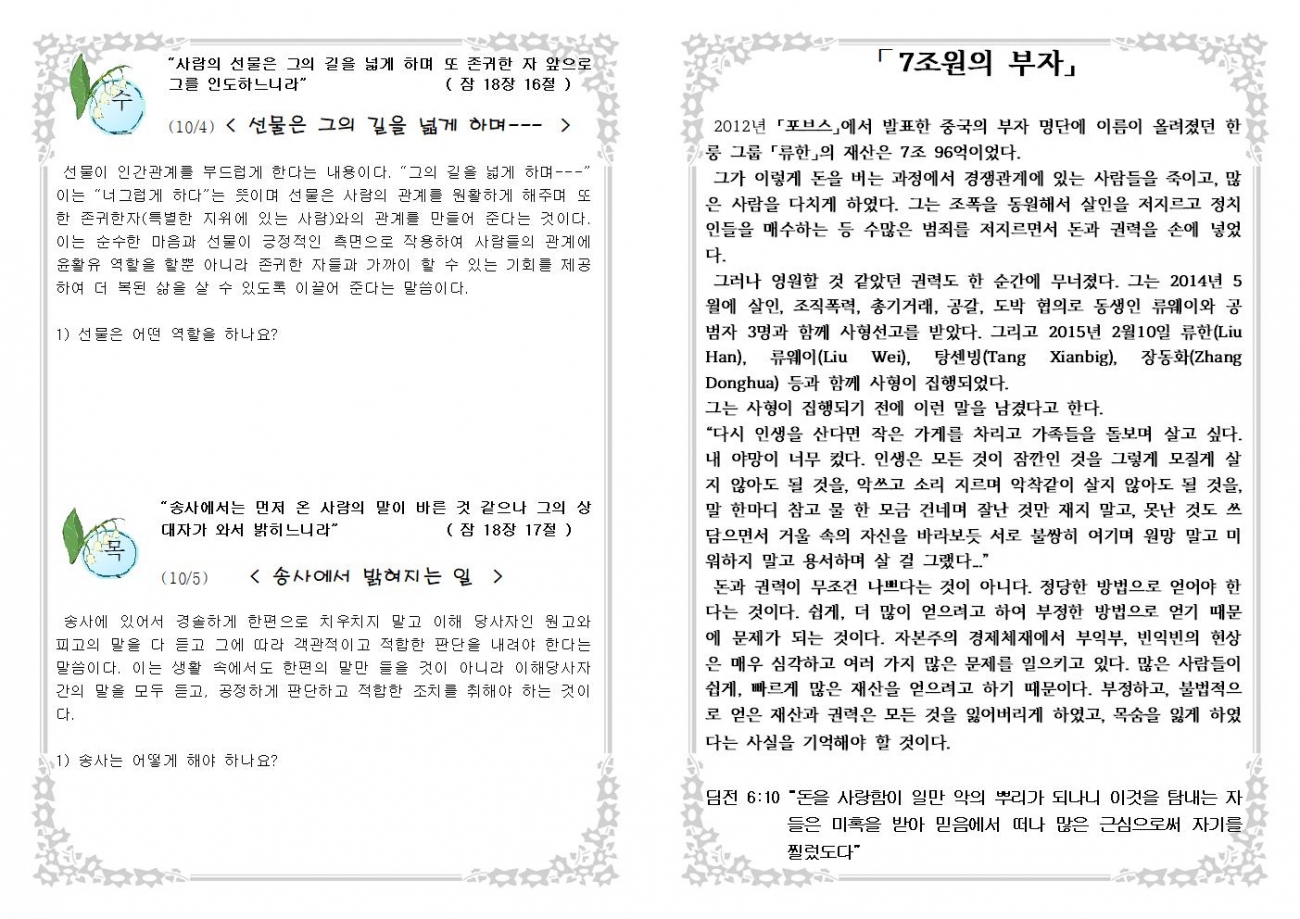 수
“사람의 선물은 그의 길을 넓게 하며 또 존귀한 자 앞으로
그를 인도하느니라” ( 잠 18장 16절 )
(10/4) < 선물은 그의 길을 넓게 하며--- >
선물이 인간관계를 부드럽게 한다는 내용이다. “그의 길을 넓게 하며---”
이는 “너그럽게 하다”는 뜻이며 선물은 사람의 관계를 원활하게 해주며 또
한 존귀한자(특별한 지위에 있는 사람)와의 관계를 만들어 준다는 것이다.
이는 순수한 마음과 선물이 긍정적인 측면으로 작용하여 사람들의 관계에
윤활유 역할을 할뿐 아니라 존귀한 자들과 가까이 할 수 있는 기회를 제공
하여 더 복된 삶을 살 수 있도록 이끌어 준다는 말씀이다.
1) 선물은 어떤 역할을 하나요?
목
“송사에서는 먼저 온 사람의 말이 바른 것 같으나 그의 상
대자가 와서 밝히느니라” ( 잠 18장 17절 )
(10/5) < 송사에서 밝혀지는 일 >
송사에 있어서 경솔하게 한편으로 치우치지 말고 이해 당사자인 원고와
피고의 말을 다 듣고 그에 따라 객관적이고 적합한 판단을 내려야 한다는
말씀이다. 이는 생활 속에서도 한편의 말만 들을 것이 아니라 이해당사자
간의 말을 모두 듣고, 공정하게 판단하고 적합한 조치를 취해야 하는 것이
다.
1) 송사는 어떻게 해야 하나요?
「7조원의 부자」
2012년 「포브스」에서 발표한 중국의 부자 명단에 이름이 올려졌던 한
룽 그룹 「류한」의 재산은 7조 96억이었다.
그가 이렇게 돈을 버는 과정에서 경쟁관계에 있는 사람들을 죽이고, 많
은 사람을 다치게 하였다. 그는 조폭을 동원해서 살인을 저지르고 정치
인들을 매수하는 등 수많은 범죄를 저지르면서 돈과 권력을 손에 넣었
다.
그러나 영원할 것 같았던 권력도 한 순간에 무너졌다. 그는 2014년 5
월에 살인, 조직폭력, 총기거래, 공갈, 도박 협의로 동생인 류웨이와 공
범자 3명과 함께 사형선고를 받았다. 그리고 2015년 2월10일 류한(Liu
Han), 류웨이(Liu Wei), 탕센빙(Tang Xianbig), 장동화(Zhang
Donghua) 등과 함께 사형이 집행되었다.
그는 사형이 집행되기 전에 이런 말을 남겼다고 한다.
“다시 인생을 산다면 작은 가게를 차리고 가족들을 돌보며 살고 싶다.
내 야망이 너무 컸다. 인생은 모든 것이 잠깐인 것을 그렇게 모질게 살
지 않아도 될 것을, 악쓰고 소리 지르며 악착같이 살지 않아도 될 것을,
말 한마디 참고 물 한 모금 건네며 잘난 것만 재지 말고, 못난 것도 쓰
담으면서 거울 속의 자신을 바라보듯 서로 불쌍히 여기며 원망 말고 미
워하지 말고 용서하며 살 걸 그랬다...”
돈과 권력이 무조건 나쁘다는 것이 아니다. 정당한 방법으로 얻어야 한
다는 것이다. 쉽게, 더 많이 얻으려고 하여 부정한 방법으로 얻기 때문
에 문제가 되는 것이다. 자본주의 경제체재에서 부익부, 빈익빈의 현상
은 매우 심각하고 여러 가지 많은 문제를 일으키고 있다. 많은 사람들이
쉽게, 빠르게 많은 재산을 얻으려고 하기 때문이다. 부정하고, 불법적으
로 얻은 재산과 권력은 모든 것을 잃어버리게 하였고, 목숨을 잃게 하였
다는 사실을 기억해야 할 것이다.
딤전 6:10 “돈을 사랑함이 일만 악의 뿌리가 되나니 이것을 탐내는 자
들은 미혹을 받아 믿음에서 떠나 많은 근심으로써 자기를
찔렀도다”